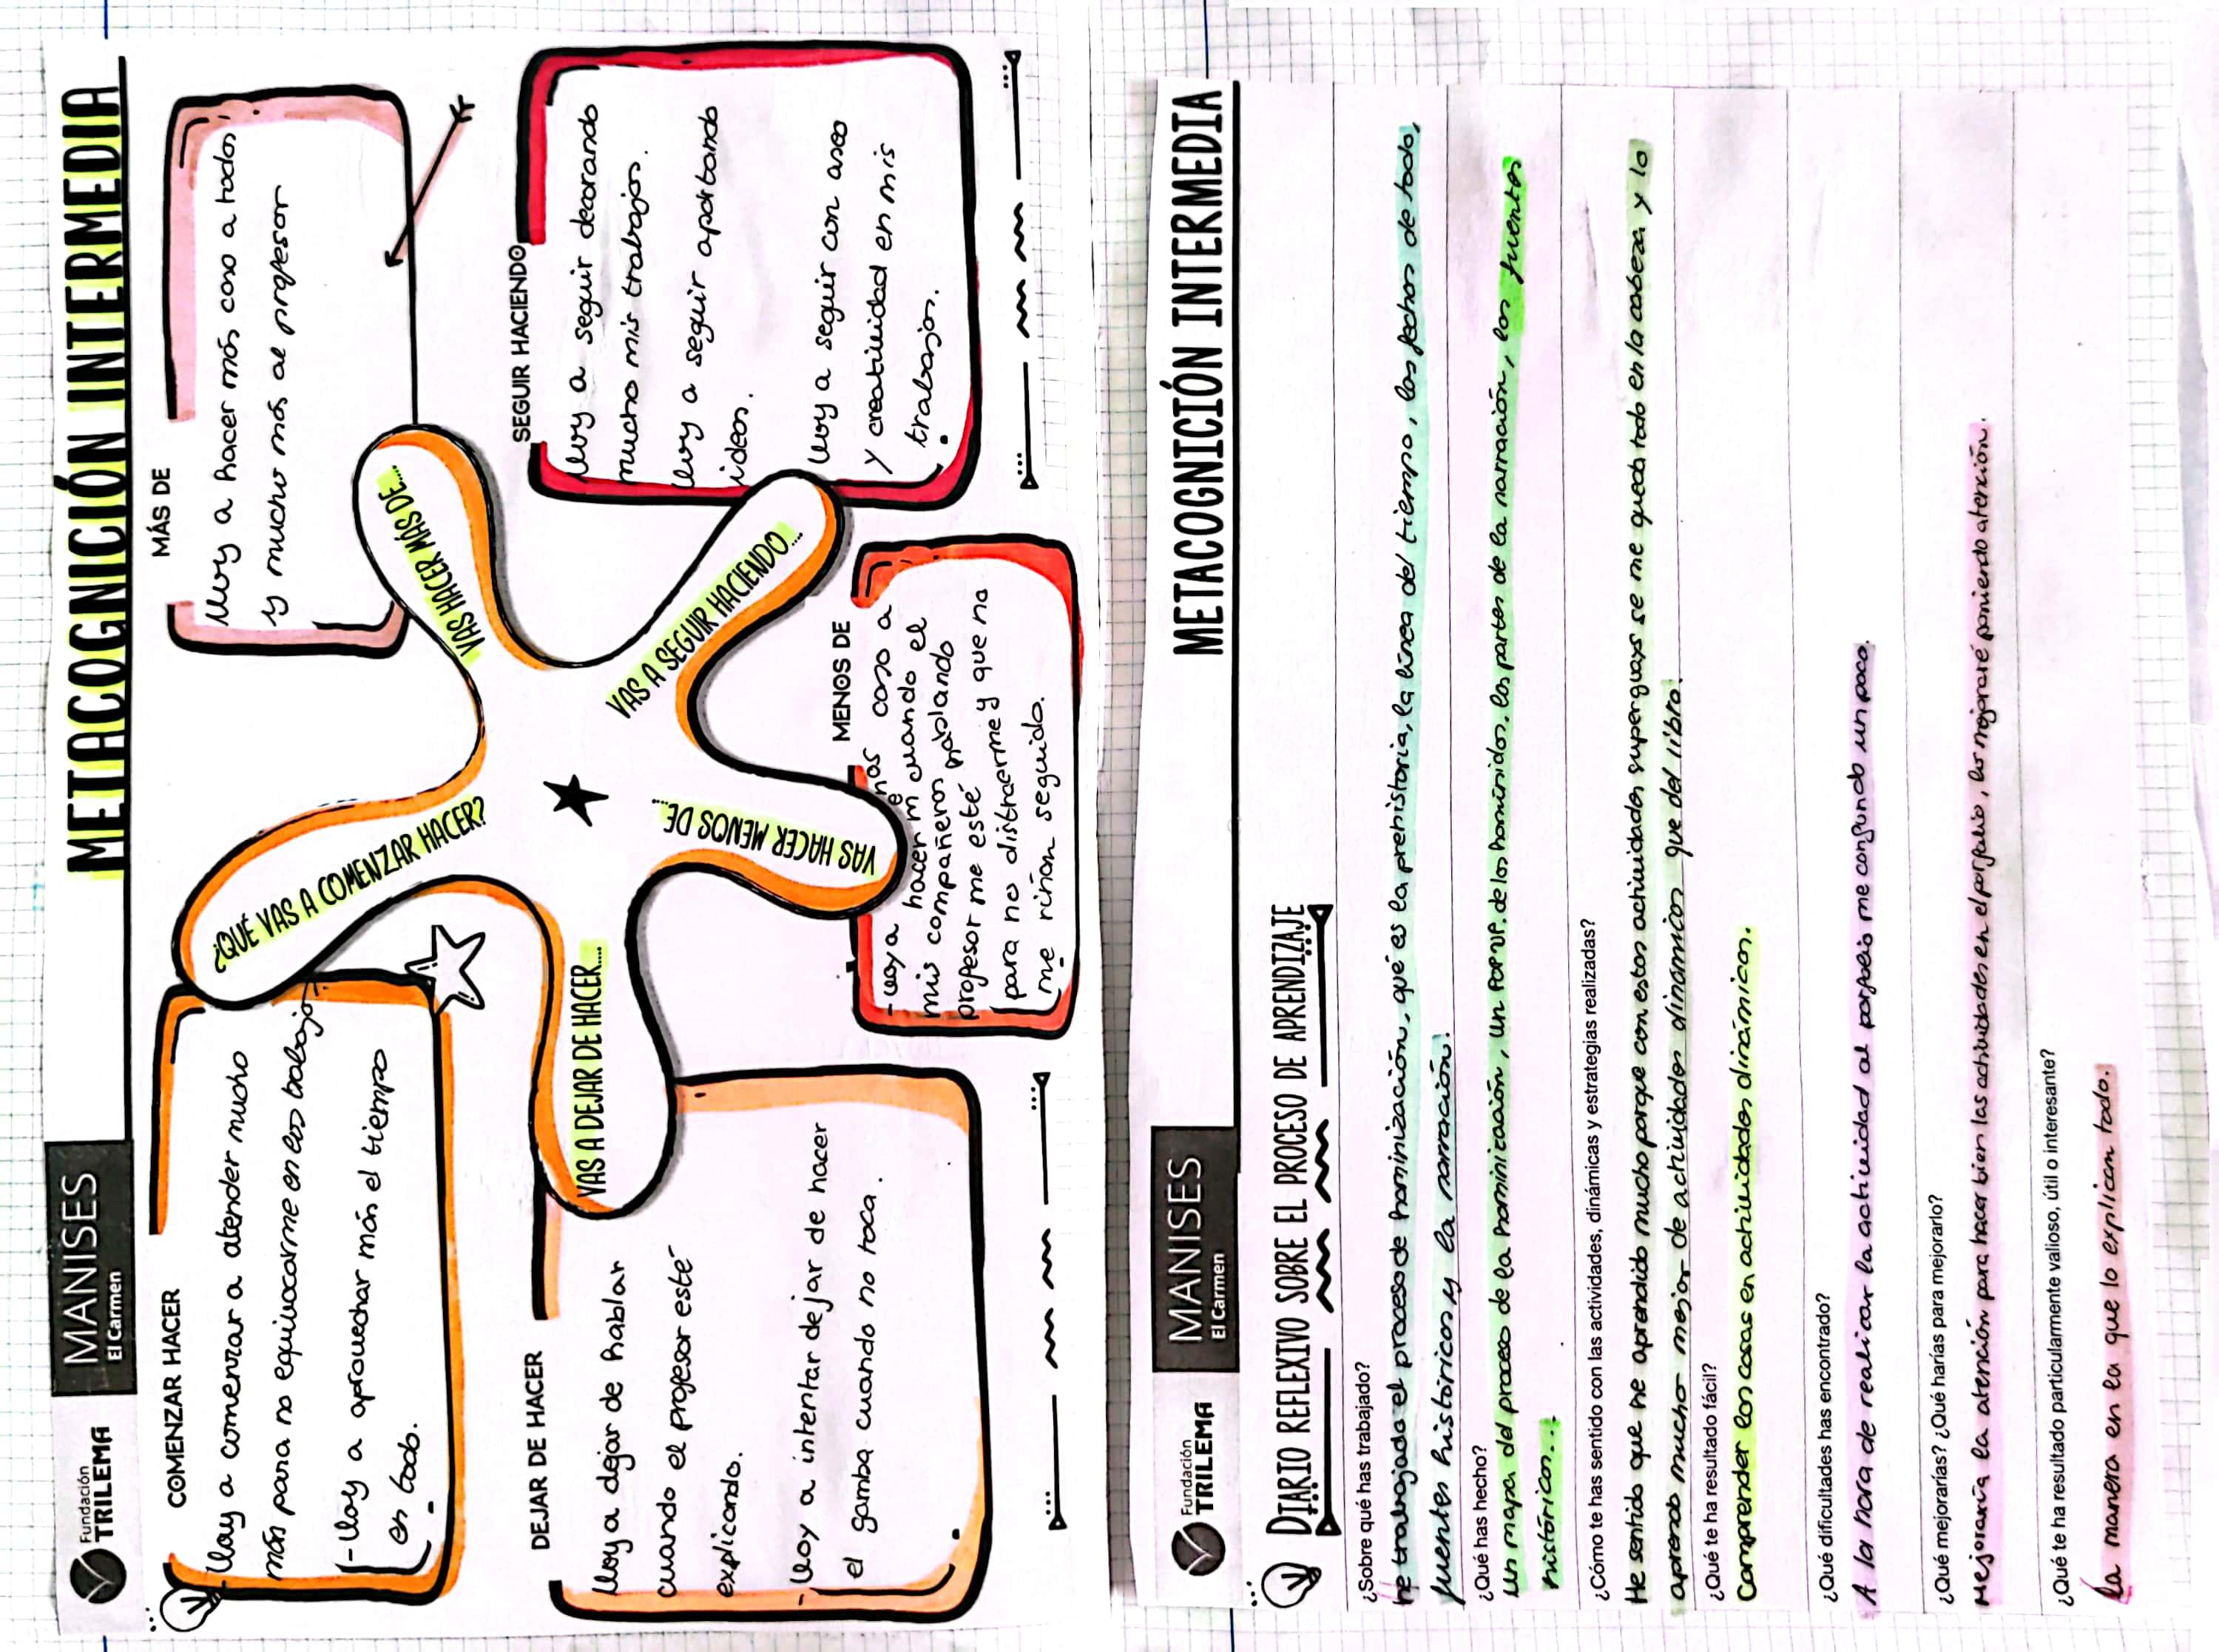 Fundación
TRILEMA
MANISES
El Carmen
METACOGNICIÓN INTERMEDIA
COMENZAR HACER
- Voy a comenzar a atender mucho
más para no equivocarme en los trabajos
- Voy a aprovechar más el tiempo
en todo.
MÁS DE
Voy a hacer más caso a todos
y mucho más al profesor
¿QUÉ VAS A COMENZAR HACER?
VAS HACER MÁS DE...
VAS A SEGUIR HACIENDO...
VAS HACER MENOS DE...
VAS A DEJAR DE HACER...
DEJAR DE HACER
Voy a dejar de hablar
cuando el profesor esté
explicando.
- Voy a intentar dejar de hacer
el gamba cuando no toca.
SEGUIR HACIENDO
Voy a seguir decorando
mucho mis trabajos.
Voy a seguir aportando
ideas.
Voy a seguir con aseo
y creatividad en mis
trabajos.
MENOS DE
- Voy a hacer menos caso a
mis compañeros cuando el
profesor me esté hablando
para no distraerme y que no
me riñan seguido.
Fundación
TRILEMA
MANISES
El Carmen
METACOGNICIÓN INTERMEDIA
DIARIO REFLEXIVO SOBRE EL PROCESO DE APRENDIZAJE
¿Sobre qué has trabajado?
He trabajado el proceso de hominización, qué es la prehistoria, la línea del tiempo, los fechos de todo,
fuentes históricos y la narración.
¿Qué has hecho?
un mapa del proceso de la hominización, un POP UP. de los homínidos, los partes de la narración, los fuentes
históricos...
¿Cómo te has sentido con las actividades, dinámicas y estrategias realizadas?
He sentido que he aprendido mucho porque con estos actividades superguays se me queda todo en la cabeza y lo
aprendo mucho mejor de actividades dinámicos que del libro.
¿Qué te ha resultado fácil?
Comprender los cosas en actividades dinámicos.
¿Qué dificultades has encontrado?
A la hora de realizar la actividad al porfeis me confundo un poco.
¿Qué mejorarías? ¿Qué harías para mejorarlo?
Mejoraría la atención para hacer bien las actividades en el porfolio, lo mejoraré poniendo atención.
¿Qué te ha resultado particularmente valioso, útil o interesante?
La manera en la que lo explican todo.